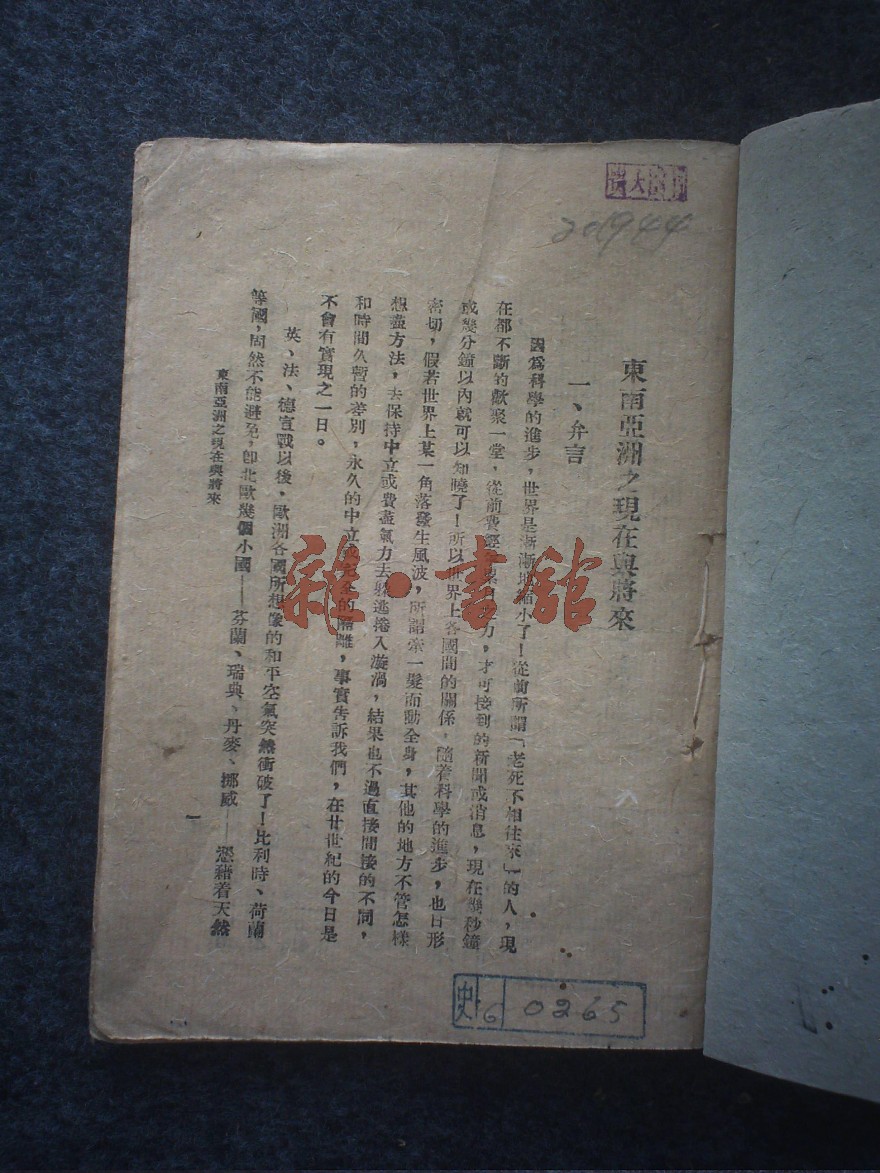 20944
東南亞洲之現在與將來
一、弁言
因爲科學的進步，世界是漸漸地縮小了！從前所謂「老死不相往來」的人，現
在都不斷的歡聚一堂，從前費經力，才可接到的新聞或消息，現在幾秒鐘
或幾分鐘以內就可以知曉了！所以世界上各國間的關係，隨着科學的進步，也日形
密切，假若世界上某一角落發生風波，所謂牽一髮而動全身，其他的地方不管怎樣
想盡方法，去保持中立或費盡氣力去躲逃捲入漩渦，結果也不過直接間接的不同，
和時間久暫的差別，永久的中立或完全的隔離，事實告訴我們，在廿世紀的今日是
不會有實現之一日。
英、法、德宣戰以後，歐洲各國所想像的和平空氣突然衝破了！比利時、荷蘭
等國，固然不能避免，卽北歐幾個小國——芬蘭、瑞典、丹麥、挪威——憑藉着天然
東南亞洲之現在與將來
一
史 6 0265
雜·書館